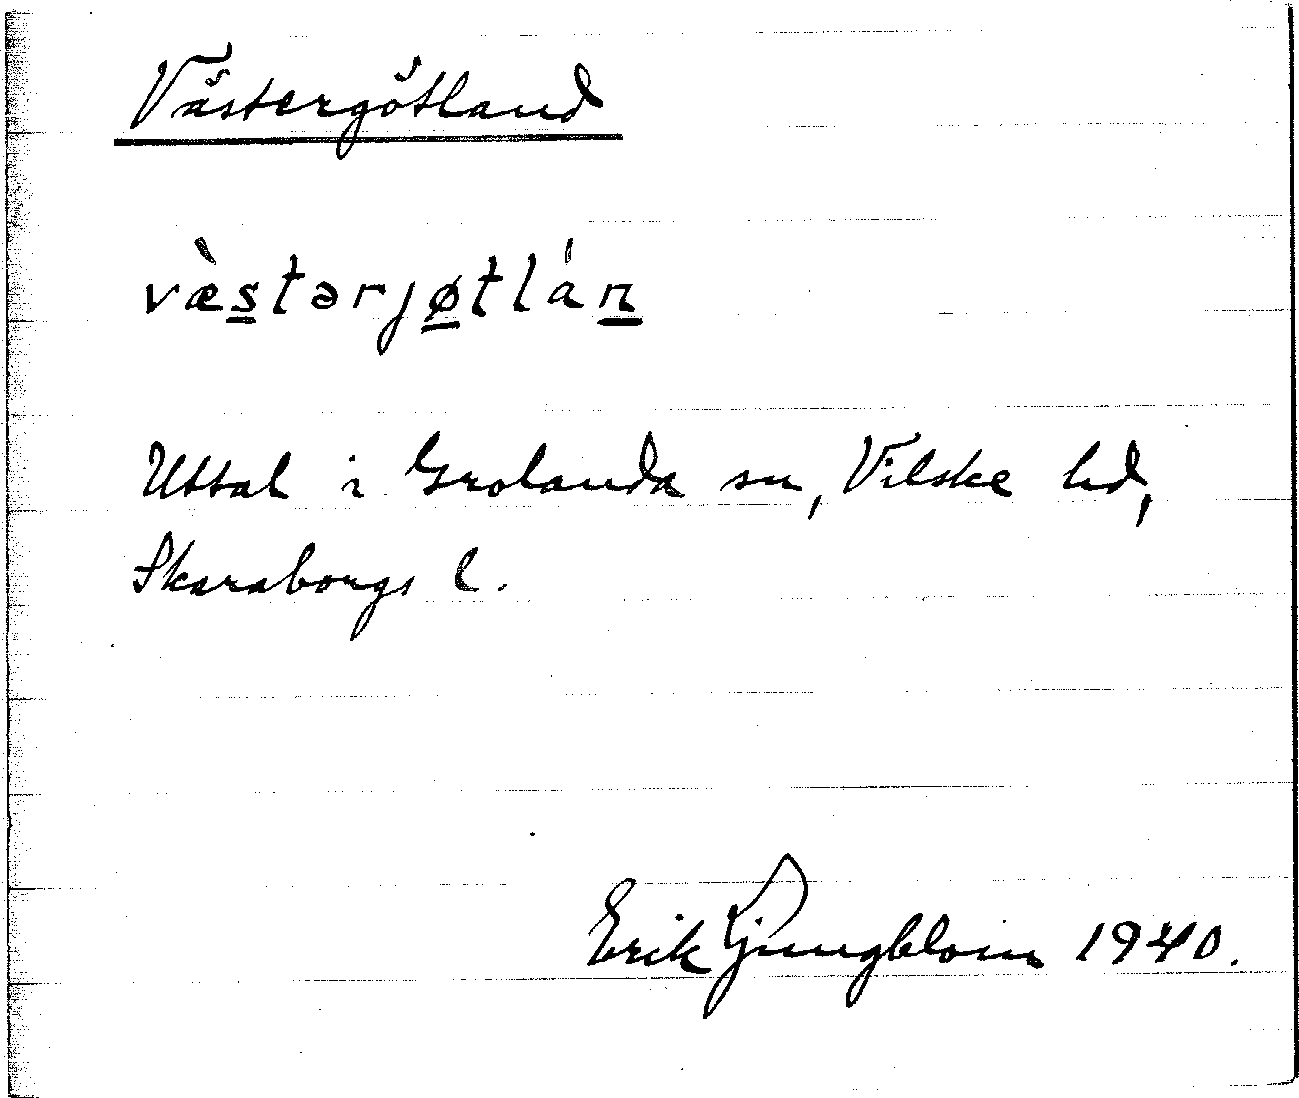 Västergötland
væ̀s̲tərjø̲tlán̲
Uttal i Grolanda sn, Vilske hd,
Skaraborgs l.
Erik Ljungblom 1940.